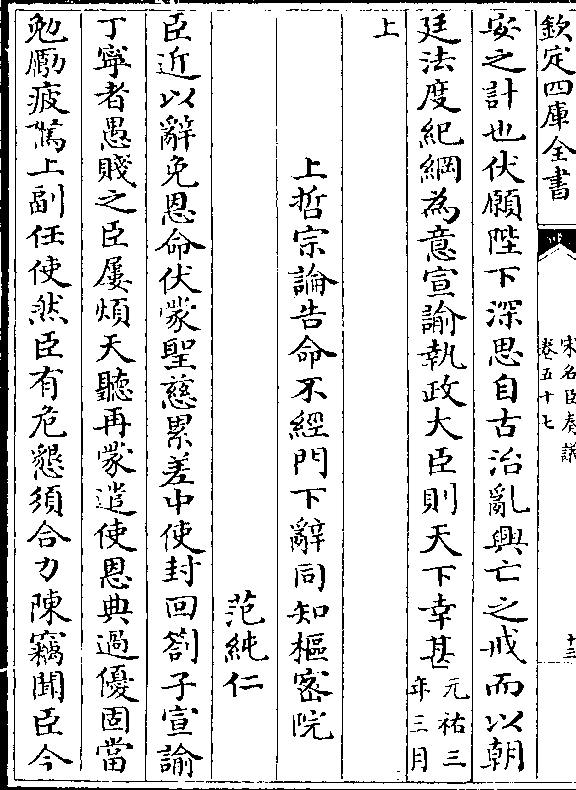 欽定四庫全書
宋名臣奏議
卷五十七
十三
安之計也伏願陛下深思自古治亂興亡之戒而以朝
廷法度紀綱為意宣諭執政大臣則天下幸甚元祐三年三月
上
上哲宗論告命不經門下辭同知樞密院
范純仁
臣近以辭免恩命伏蒙聖慈累差中使封回劄子宣諭
丁寧者愚賤之臣屢煩天聽再蒙遣使恩典過優固當
勉勵疲駑上副任使然臣有危懇須合力陳竊聞臣今